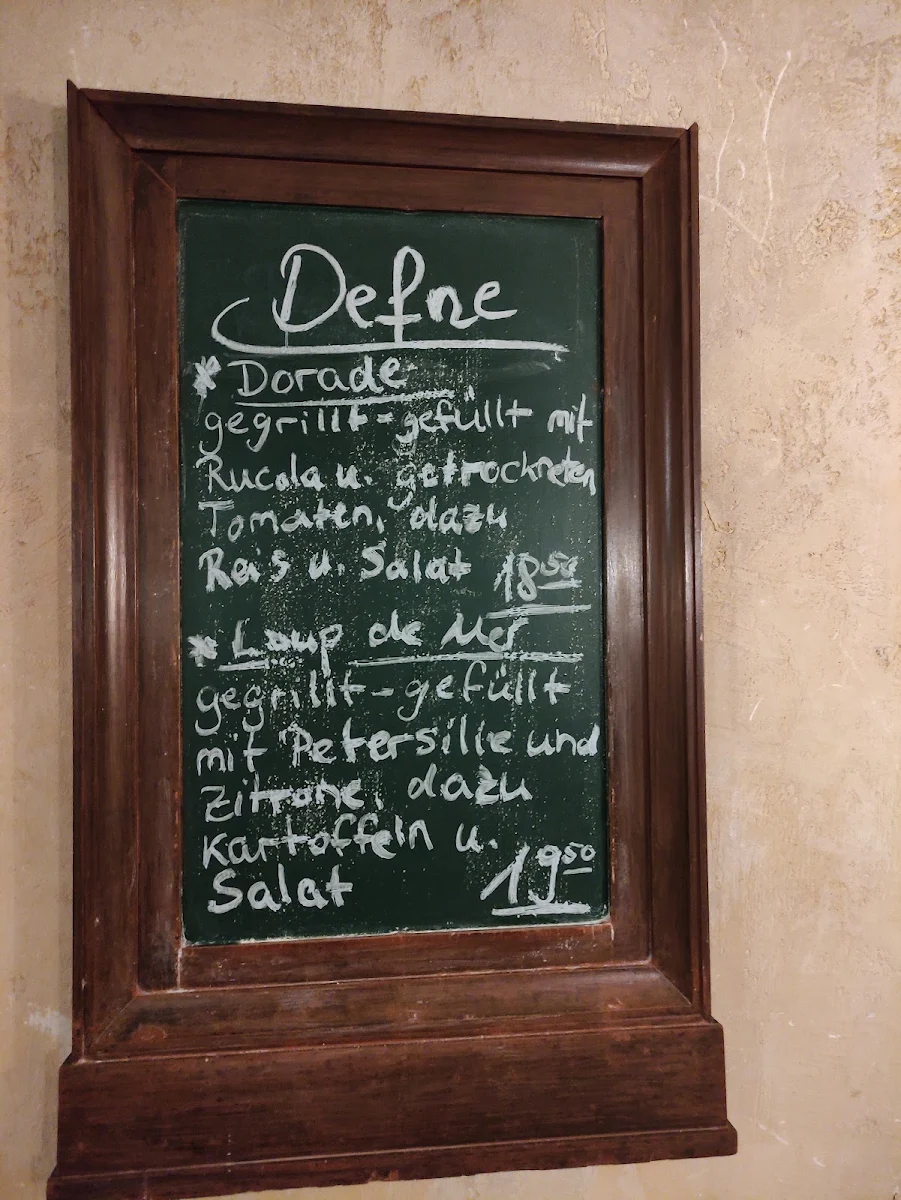 Defne
* Dorade
gegrillt-gefüllt mit
Rucola u. getrockneten
Tomaten, dazu
Reis u. Salat 18 50
* Loup de Mer
gegrillt-gefüllt
mit Petersilie und
Zitrone, dazu
Kartoffeln u.
Salat 19 50